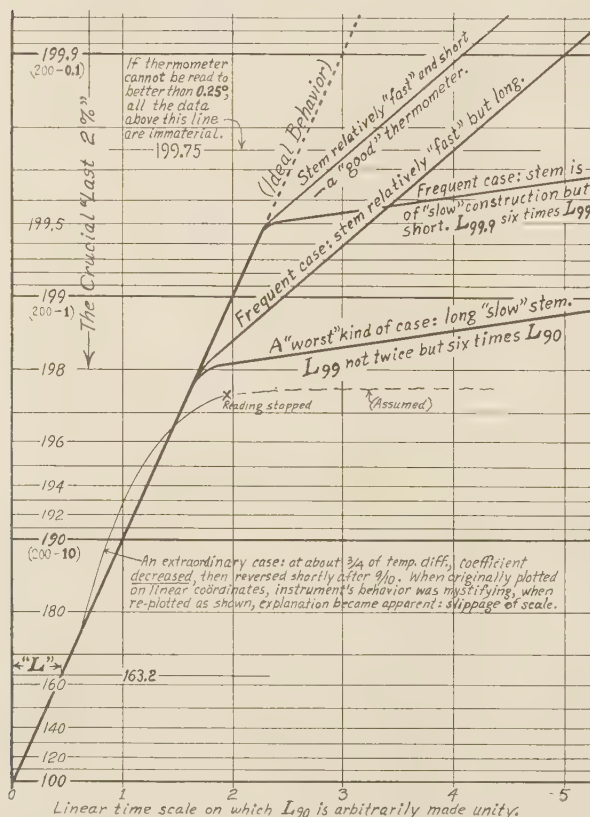 199.9
(200-0.1)
If thermometer
cannot be read to
better than 0.25°,
all the data
above this line
are immaterial.
199.75
The Crucial "last 2%"
(Ideal Behavior)
Stem relatively "fast" and short
— a "good" thermometer.
Frequent case: stem relatively "fast" but long.
Frequent case: stem is
of "slow" construction but
short. L99.9 six times L99
199.5
199
(200-1)
A "worst" kind of case: long "slow" stem.
L99 not twice but six times L90
198
Reading stopped
(Assumed)
196
194
192
190
(200-10)
An extraordinary case: at about ¾ of temp. diff., coefficient
decreased, then reversed shortly after 9/10. When originally plotted
on linear coordinates, instrument's behavior was mystifying, when
re-plotted as shown, explanation became apparent: slippage of scale.
180
"L"
163.2
160
140
120
100
0 1 2 3 4 5
Linear time scale on which L90 is arbitrarily made unity.